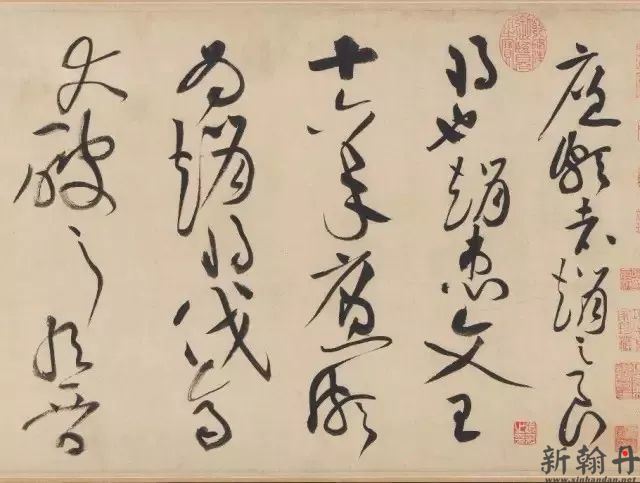 廉頗者趙之良
將也趙惠文王
十六年廉頗
為趙將伐齊
大破之取晉
新翰丹
www.xinhandan.net